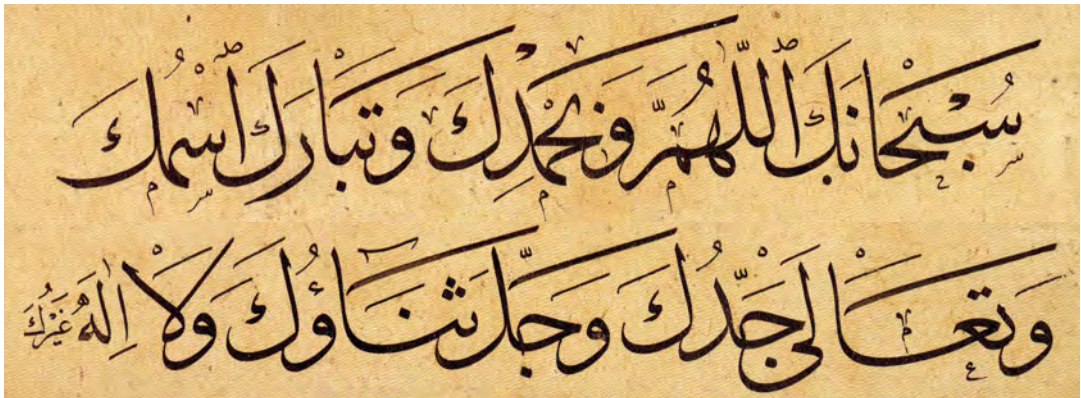 سُبْحَانَكَ اللّٰهُمَّ وَبِحَمْدِكَ وَتَبَارَكَ اسْمُكَ
وَتَعَالَى جَدُّكَ وَجَلَّ ثَنَاؤُكَ وَلَا إِلٰهَ غَيْرُكَ